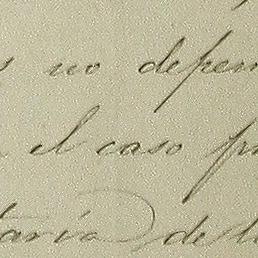 no depen
el caso pr
taria de l